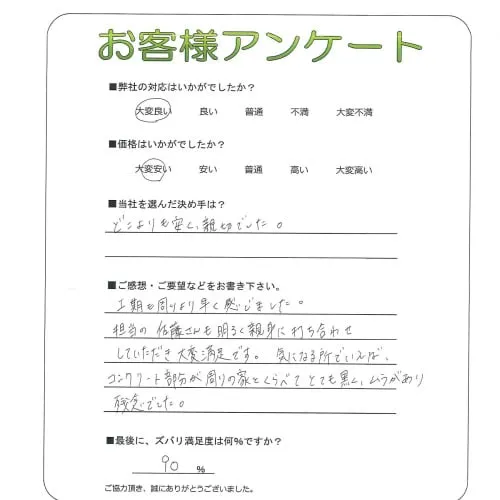 お客様アンケート
■弊社の対応はいかがでしたか？
大変良い 良い 普通 不満 大変不満
■価格はいかがでしたか？
大変安い 安い 普通 高い 大変高い
■当社を選んだ決め手は？
どこよりも安く、親切でした。
■ご感想・ご要望などをお書き下さい。
工期も周りより早く感じました。
担当の佐藤さんも明るく親身に打ち合わせ
していただき大変満足です。気になる所でいえば、
コンクリート部分が周りの家とくらべてとても黒く、ムラがあり
残念でした。
■最後に、ズバリ満足度は何％ですか？
90 ％
ご協力頂き、誠にありがとうございました。